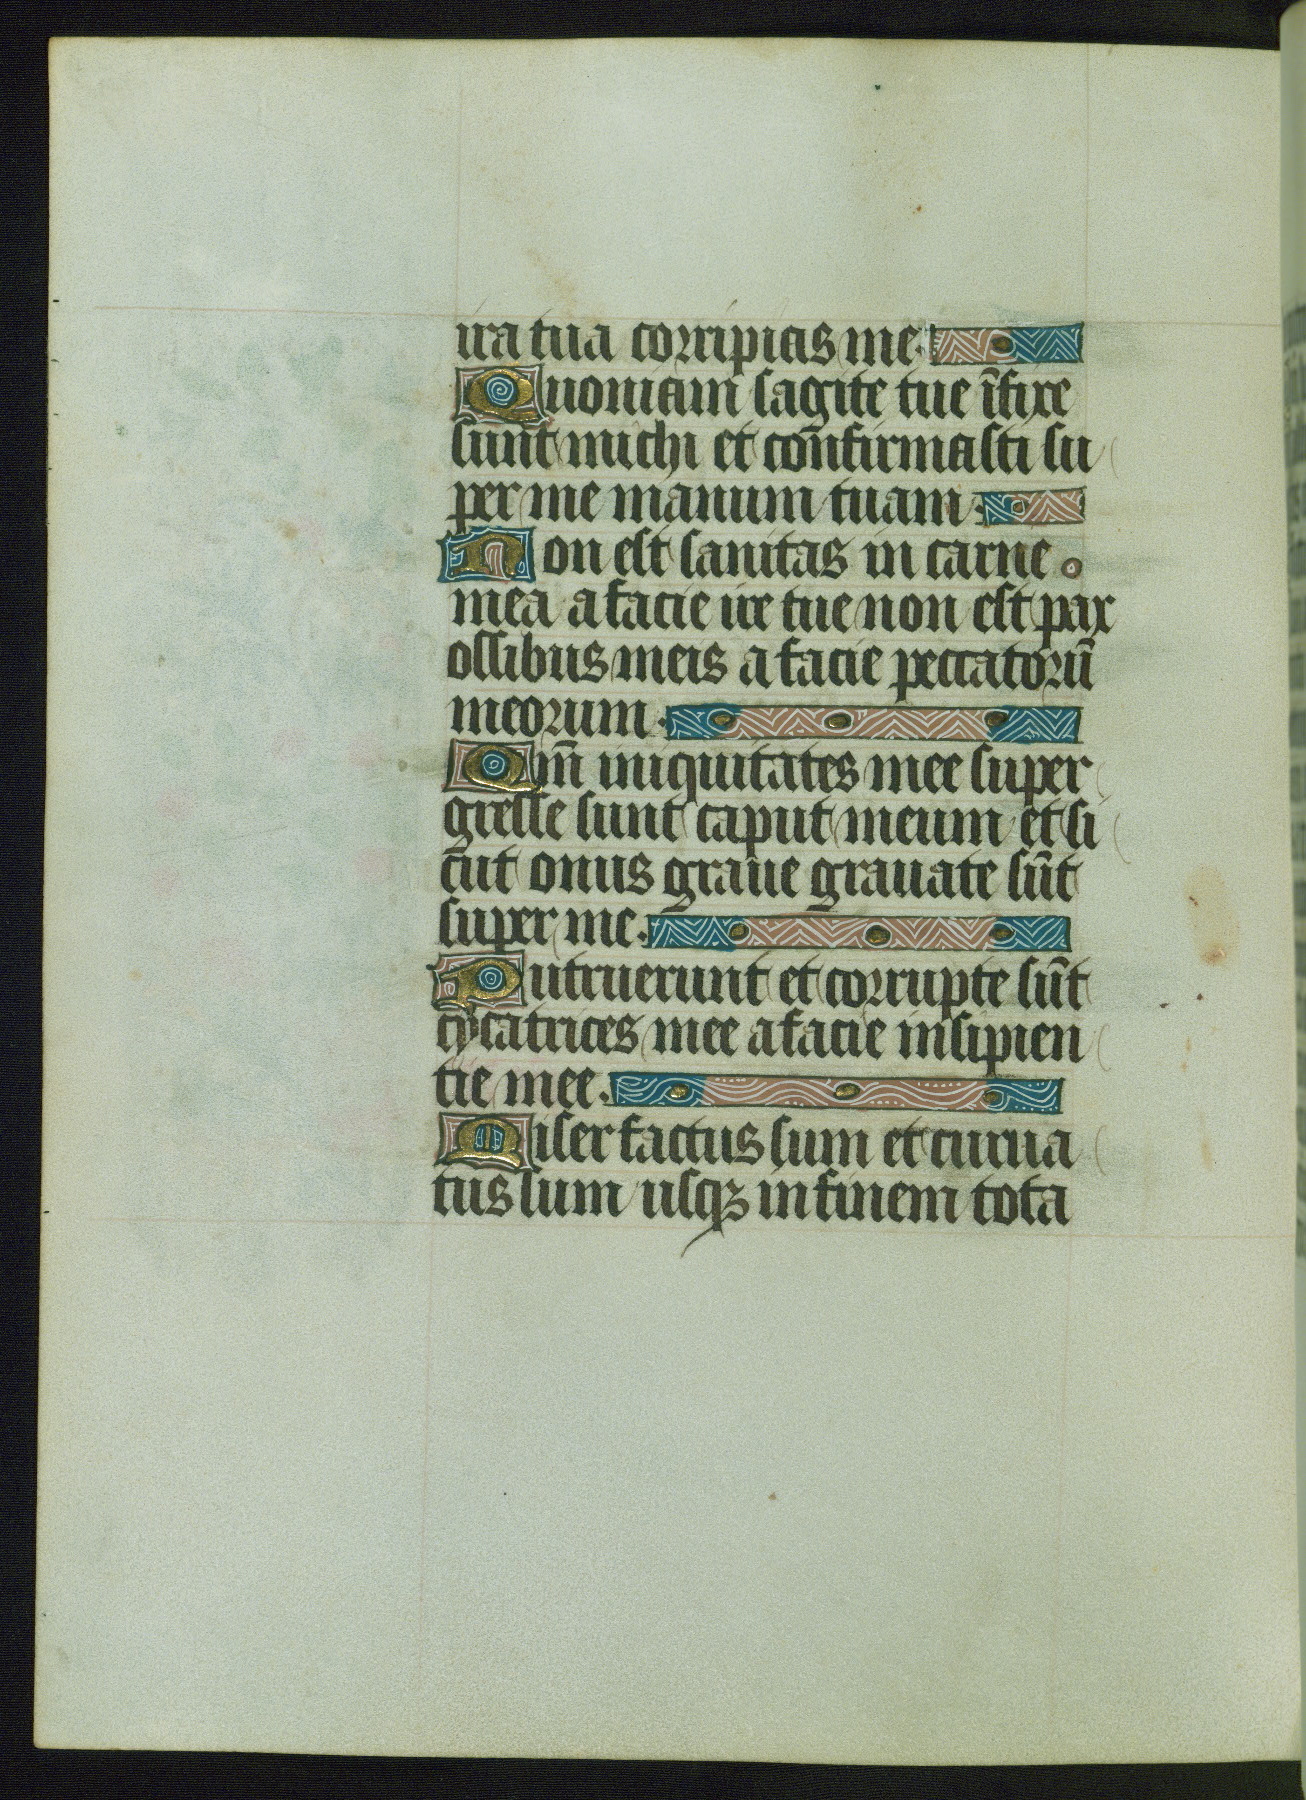 ira tua corripias me.
Quoniam sagite tue īfixe
sunt michi et confirmasti su
per me manum tuam.
Non est sanitas in carne
mea a facie ire tue non est pax
ossibus meis a facie peccatorū
meorum.
Qm̄ iniquitates mee super
gresse sunt caput meum et si
cut onus graue grauate sūt
super me.
Putruerunt et corrupte sūt
cycatrices mee a facie insipien
tie mee.
Miser factus sum et curua
tus sum usqꝫ in finem tota